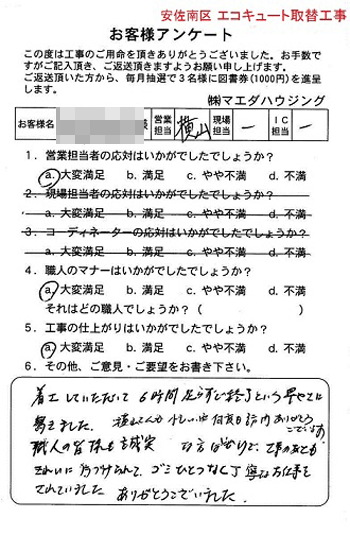 安佐南区 エコキュート取替工事
お客様アンケート
この度は工事のご用命を頂きありがとうございました。お手数で
すがご記入頂き、ご返送頂きますようお願い申し上げます。
ご返送頂いた方から、毎月抽選で3名様に図書券(1000円)を進呈
します。
㈱マエダハウジング
お客様名 様 営業担当 横山 現場担当 ー IC担当 ー
1．営業担当者の応対はいかがでしたでしょうか？
a. 大変満足 b. 満足 c. やや不満 d. 不満
2．現場担当者の応対はいかがでしたでしょうか？
a. 大変満足 b. 満足 c. やや不満 d. 不満
3．コーディネーターの応対はいかがでしたでしょうか？
a. 大変満足 b. 満足 c. やや不満 d. 不満
4．職人のマナーはいかがでしたでしょうか？
a. 大変満足 b. 満足 c. やや不満 d. 不満
それはどの職人でしょうか？（ ）
5．工事の仕上がりはいかがでしたでしょうか？
a. 大変満足 b. 満足 c. やや不満 d. 不満
6．その他、ご意見・ご要望をお書き下さい。
着工していただいて 6時間足らずで終了という早やさに
驚きました。 横山さんも 忙しい中 何度も ありがとう
ございます
職人の皆様も誠実 な方ばかりで、
きれいに片づけられて、ゴミひとつなく丁寧なお仕事を
されていました ありがとうございました。